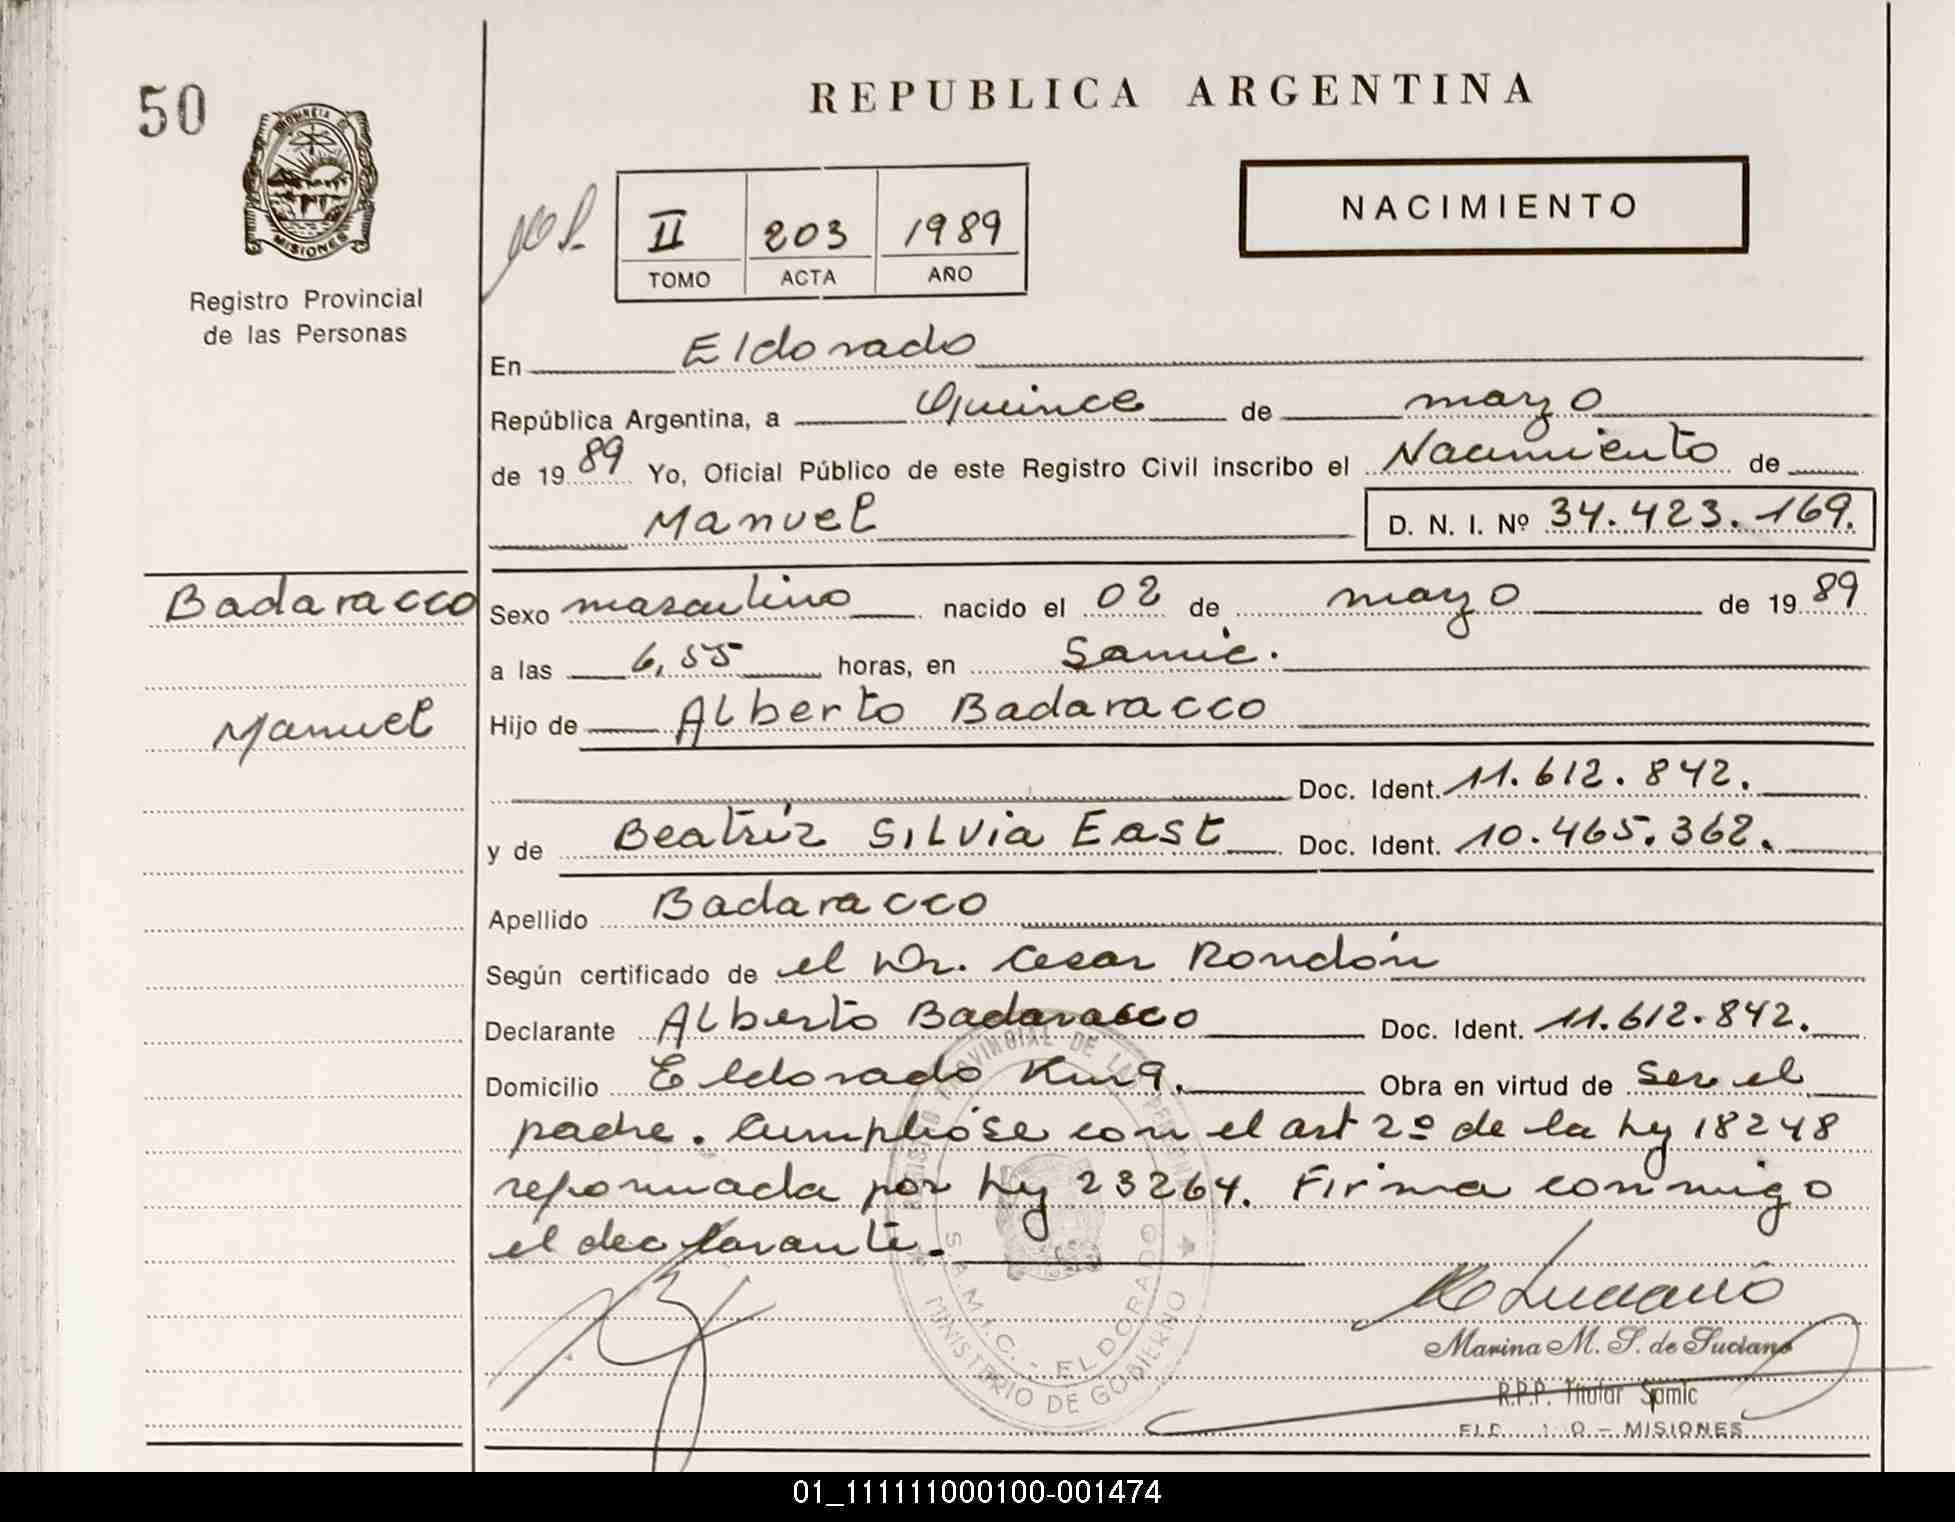 50
PROVINCIA DE
MISIONES
Registro Provincial
de las Personas
REPUBLICA ARGENTINA
NACIMIENTO
II 203 1989
TOMO ACTA AÑO
En Eldorado
República Argentina, a Quince de marzo
de 1989 Yo, Oficial Público de este Registro Civil inscribo el Nacimiento de
Manuel D. N. I. Nº 34.423.169.
Badaracco
Manuel
Sexo masculino nacido el 02 de marzo de 1989
a las 6,55 horas, en Samic.
Hijo de Alberto Badaracco
Doc. Ident. 11.612.842.
y de Beatriz Silvia East Doc. Ident. 10.465.362.
Apellido Badaracco
Según certificado de el Dr. Cesar Rondón
Declarante Alberto Badaracco Doc. Ident. 11.612.842.
Domicilio Eldorado Km 9. Obra en virtud de ser el
padre. Cumplióse con el art 2º de la ley 18248
reformada por ley 23264. Firma conmigo
el declarante.
REGISTRO PROVINCIAL DE LAS PERSONAS
S.A.M.I.C. - ELDORADO
MINISTERIO DE GOBIERNO
Marina M. S. de Luciano
R.P.P. Titular Samic
MISIONES
01_111111000100-001474